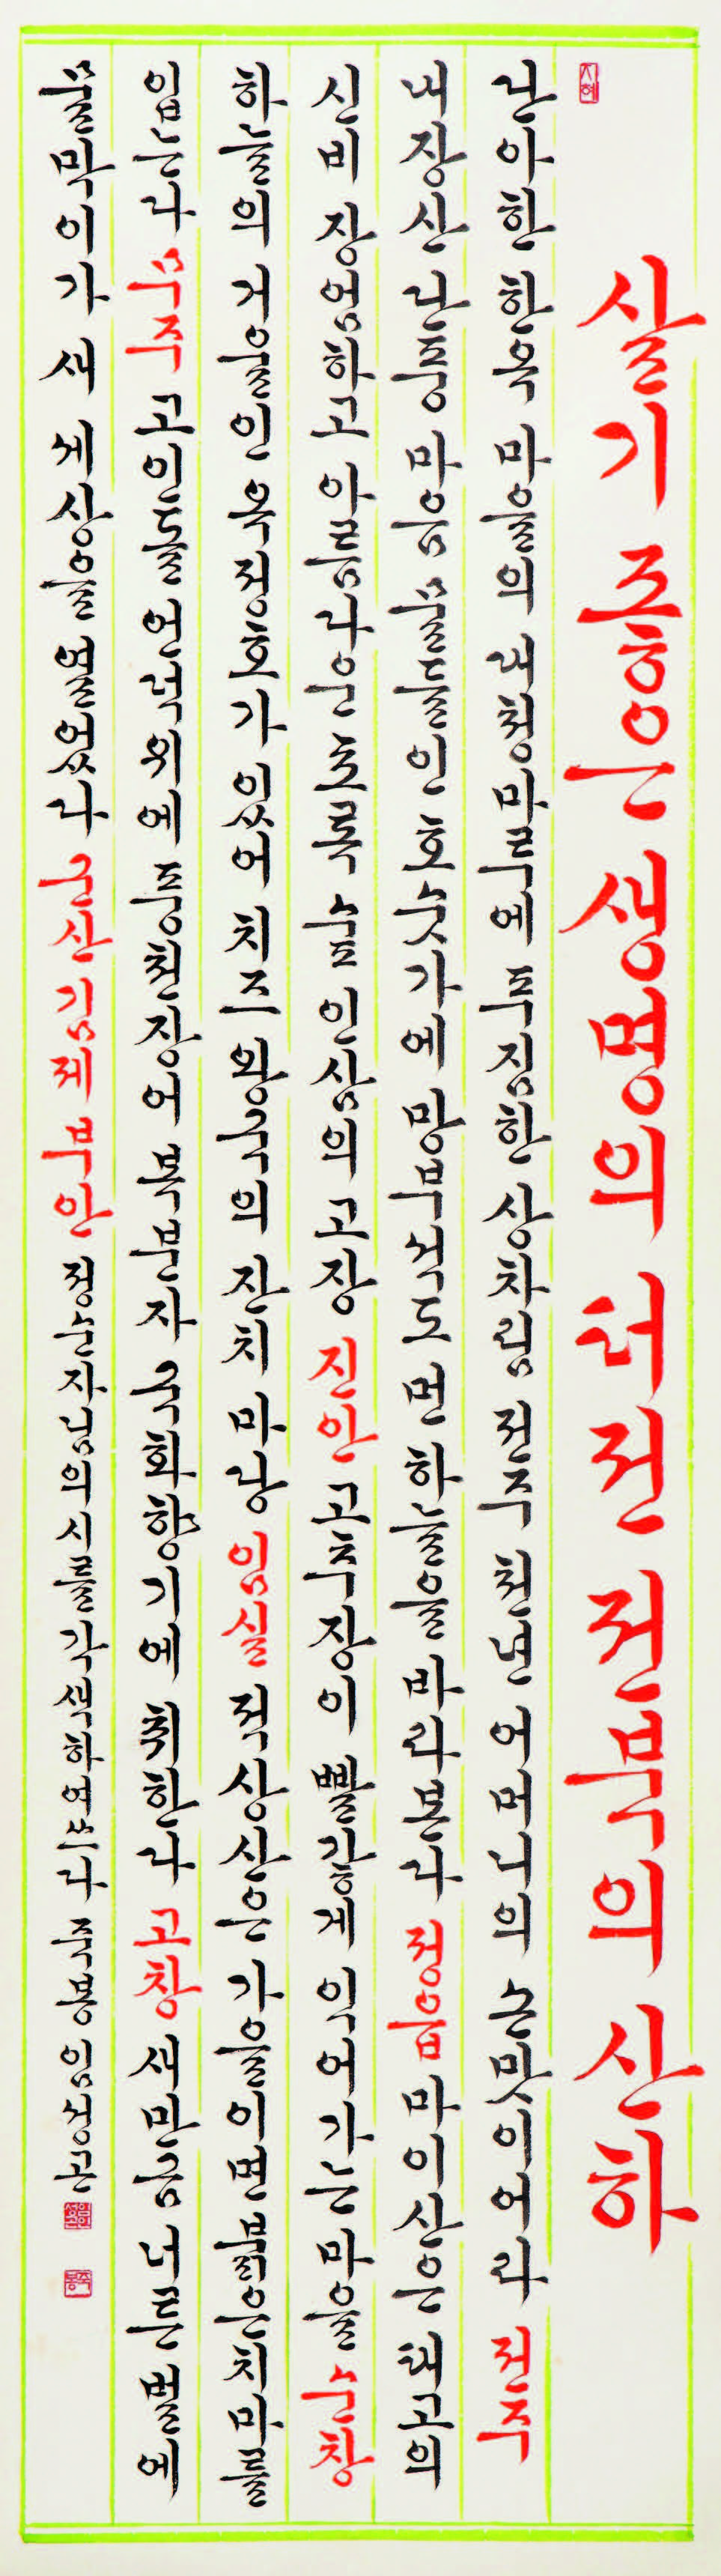 지혜
살기 좋은 생명의 터전 전북의 산하
단아한 한옥 마을의 대청마루에 푸짐한 상차림 전주 천년 어머니의 손맛이어라 전주
내장산 단풍 마음 물들인 호숫가에 망부석도 먼 하늘을 바라본다 정읍 마이산은 태고의
신비 장엄하고 아름다운 초록 숲 인삼의 고장 진안 고추장이 빨갛게 익어가는 마을 순창
하늘의 거울인 옥정호가 있어 치즈 왕국의 잔치 마당 임실 적상산은 가을이면 붉은치마를
입는다 무주 고인돌 언덕위에 풍천장어 복분자 국화향기에 취한다 고창 새만금 너른 벌에
물막이가 새 세상을 열었다 군산 김제 부안 정순자님의 시를 각색하여쓰다 죽봉 임성곤